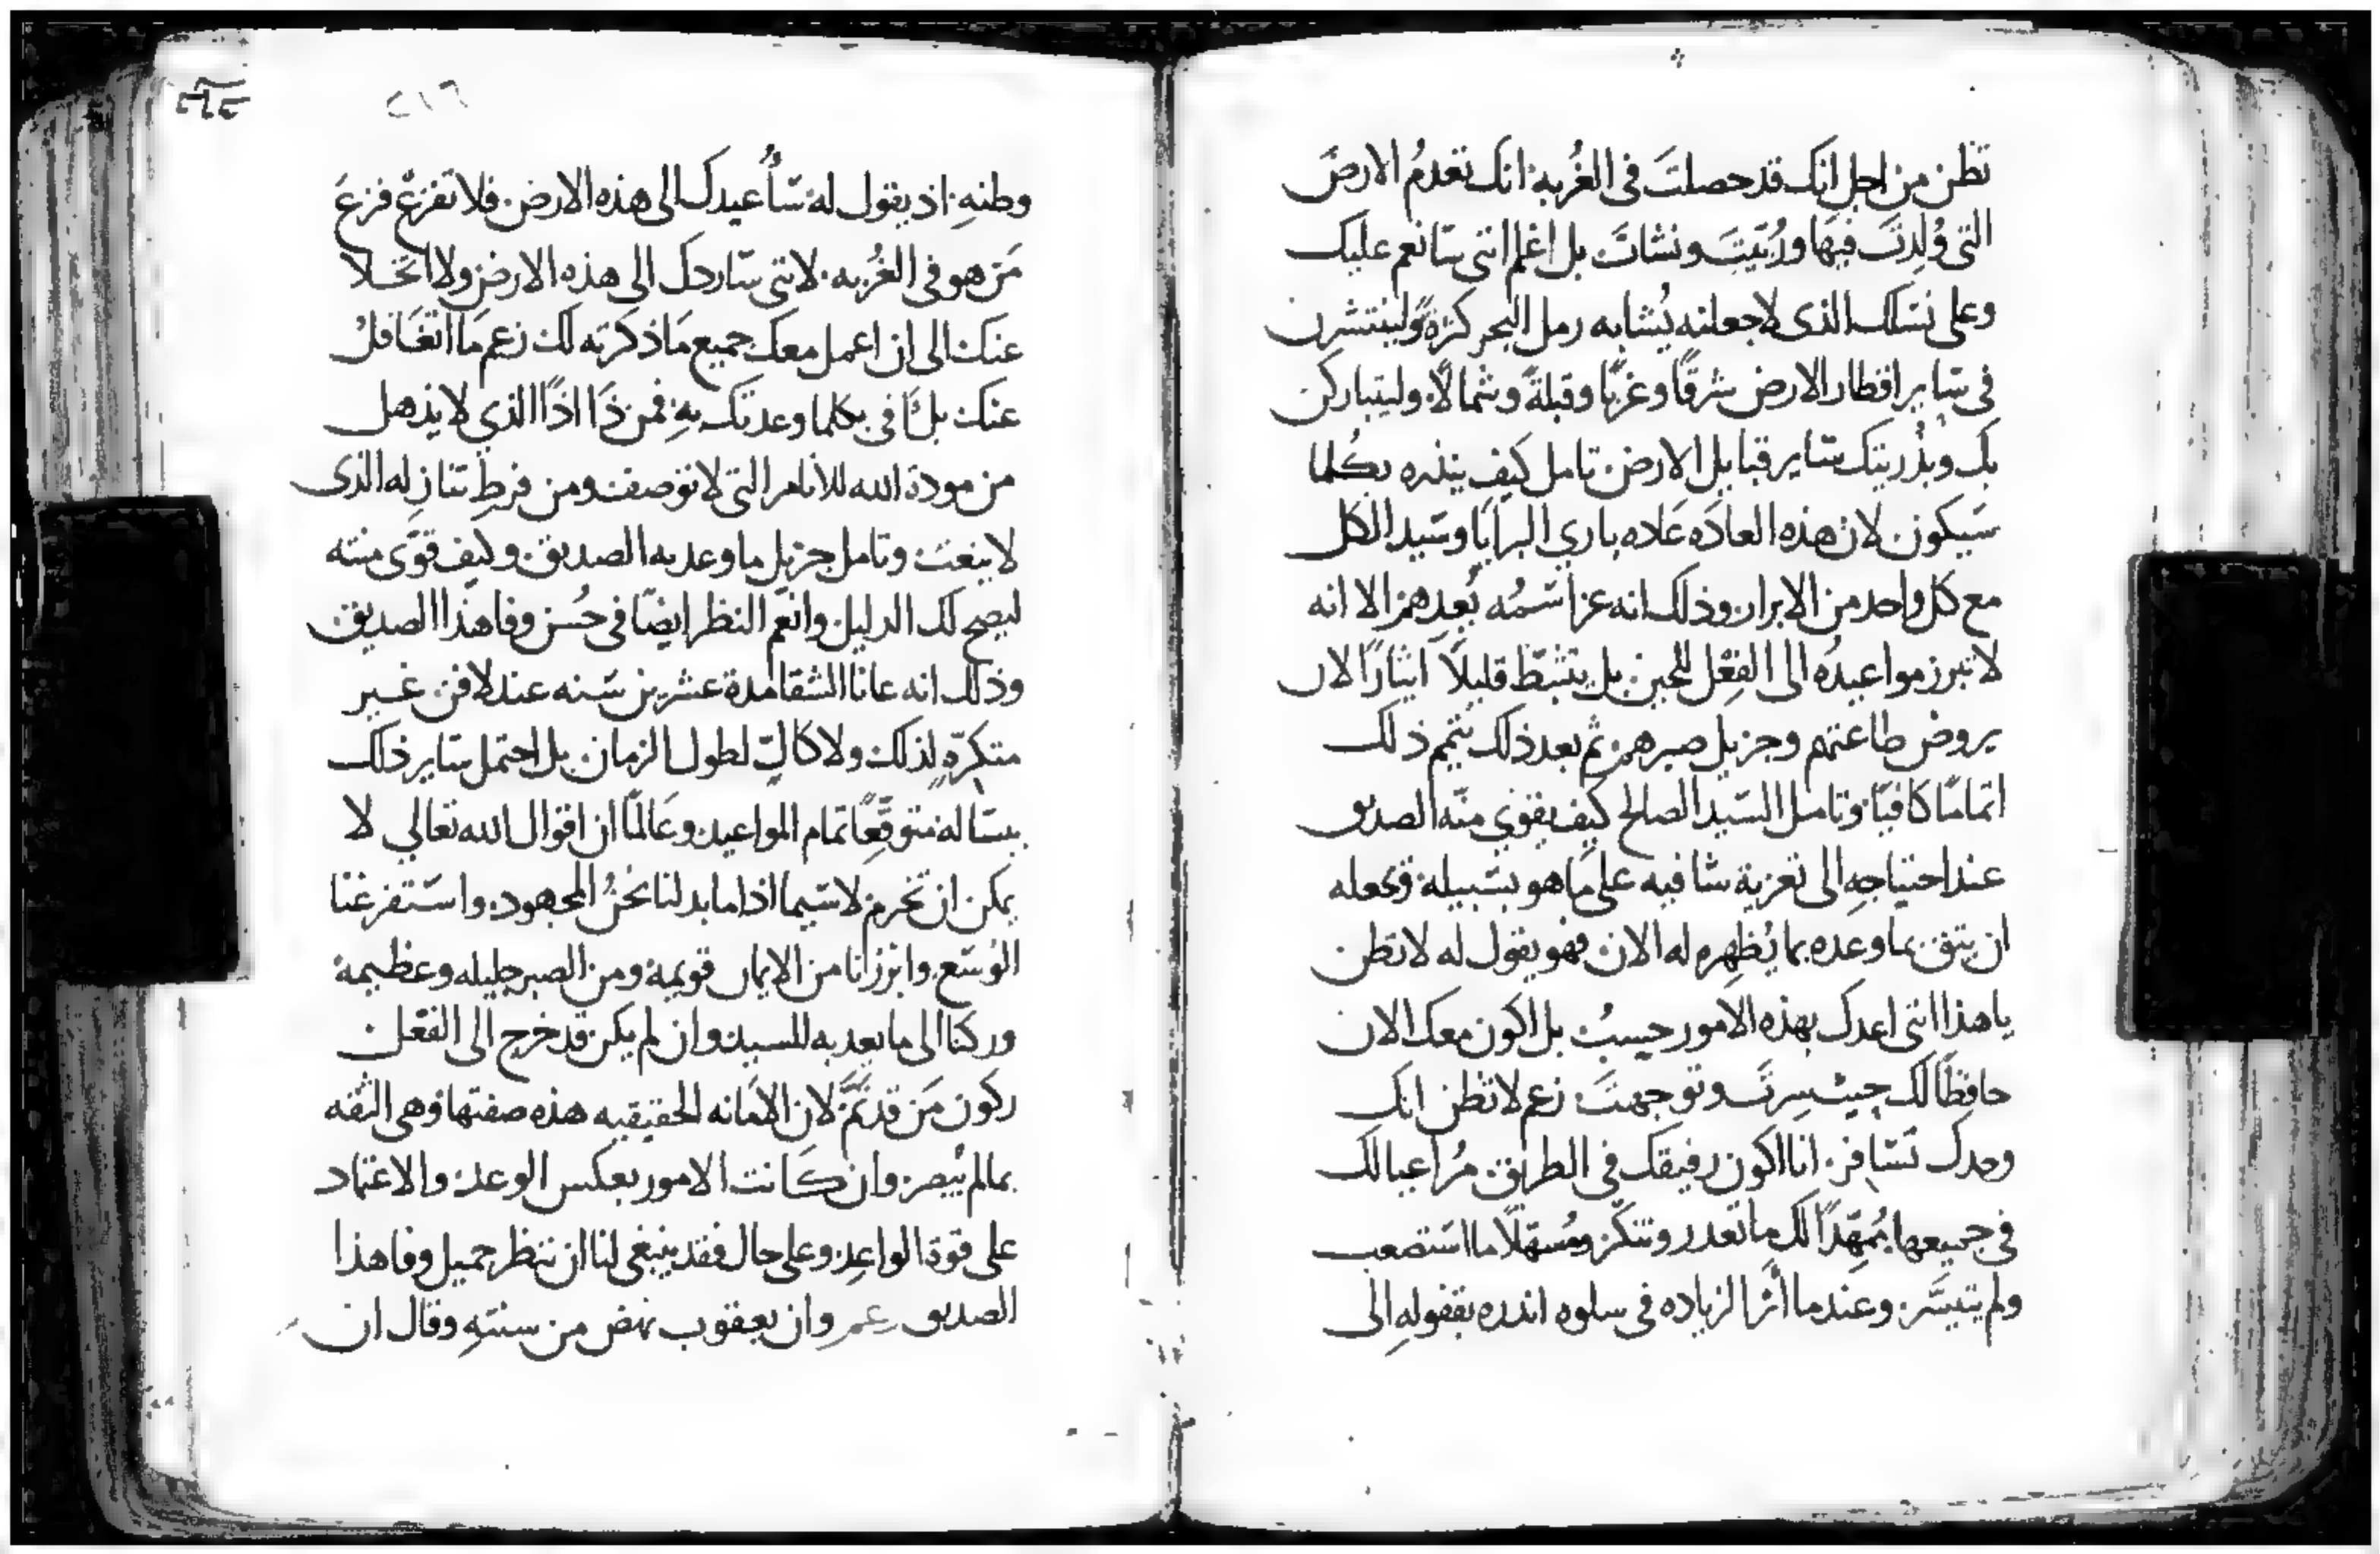 تظن من اجل انك قد حصلتَ فى الغُربه انك تعدمُ الارضَ
التى وُلِدتَ فيهَا ورُبّيتَ ونشاتَ بل اعلم اننى سَانعم عليك
وعلى نسَلك الذى لاجعلنه يُشابه رمل البحر كثرةً ولينتشرن
فى سَاير اقطار الارض شرقًا وغربًا وقبلةً وشمالًا وليتباركن
بك وبذُريتك سَاير قبايل الارض تامل كيف ينذره بكلما
سَيكون لان هذه العادَه عَاده باري البرايَا وسَيد الكل
مع كل واحد من الابرار وذلك انه عز اسَمُه يُعِدهم الا انه
لا تبرز مواعيدُه الى الفِعْل للحين بل يتثبّط قليلًا ايثارًا لان
يروض طاعتهم وجزيل صبرهم ثم بعد ذلك يتمم ذلك
اتمامًا كافيًا وتامل السَيد الصالح كيف يقوي منّه الصديق
عند احتياجهِ الى تعزية شافيه على مَا هو بسَبيله ويجعله
ان يتق بما وعده بما يُظهِره له الان فهو يقول له لا تظن
يا هذا اننى اعدك بهذه الامور حسبُ بل اكون معك الان
حافظًا لك حيث سِرتَ وتوجهتَ زعم لا تظن انك
وحدك تسَافر انا اكون رفيقك فى الطريق مُراعيا لك
فى جميعها مُمهّدًا لك ما تعدر وتنكّر ومُسَهّلًا ما اسَتصعب
ولم يتيسَّر وعندما أثر الزياده فى سلوه انذره بقفولهِ الى
٢١٦
وطنهِ اذ يقول له سَأُعيدك الى هذه الارض فلا تفزعْ فزعَ
مَن هو فى الغُربه لاننى سَاردك الى هذه الارض ولا اتخَلا
عنك الى ان اعمل معك جميع مَا ذكرته لك زعم مَا اتغَافلُ
عنك بل افى بكلما وعدتك بهِ فمن ذَا اذًا الذي لا يذهل
من مودة الله للانام التى لا توصف ومن فرطِ تنازله الذى
لا ينعت وتامل جزيل ما وعد به الصديق وكيف قوّى منته
ليصح لك الدليل وانعم النظر ايضًا فى حُسن وفا هذا الصديق
وذلك انه عانا الشقا مدة عشرين سَنه عند لافن غير
متكرّهٍ لذلك ولا كالٍّ لطول الزمان بل احتمل سَاير ذلك
ببسَاله متوقّعًا تمام المواعيد وعَالمًا ان اقوال الله تعالي لا
يمكن ان تخرم لا سَيما اذا ما بدلنا نحنُ المجهود واسَتفرغنا
الوُسَع وابرزنا من الايمان قويمه ومن الصبر جليله وعظيمه
وركنّا الى ما يعد به السيد وان لم يكن قد خرج الى الفعْل
ركون مَن قد تمّ لان الامَانه الحقيقيه هذه صفتها وهى الثقه
بما لم يُبصر وان كَانت الامور بعكس الوعد والاعتماد
على قوة الواعِد وعلى حال فقد ينبغى لنا ان ننظر جميل وفا هذا
الصديق زعم وان يعقوب نهض من سنتهِ وقال ان